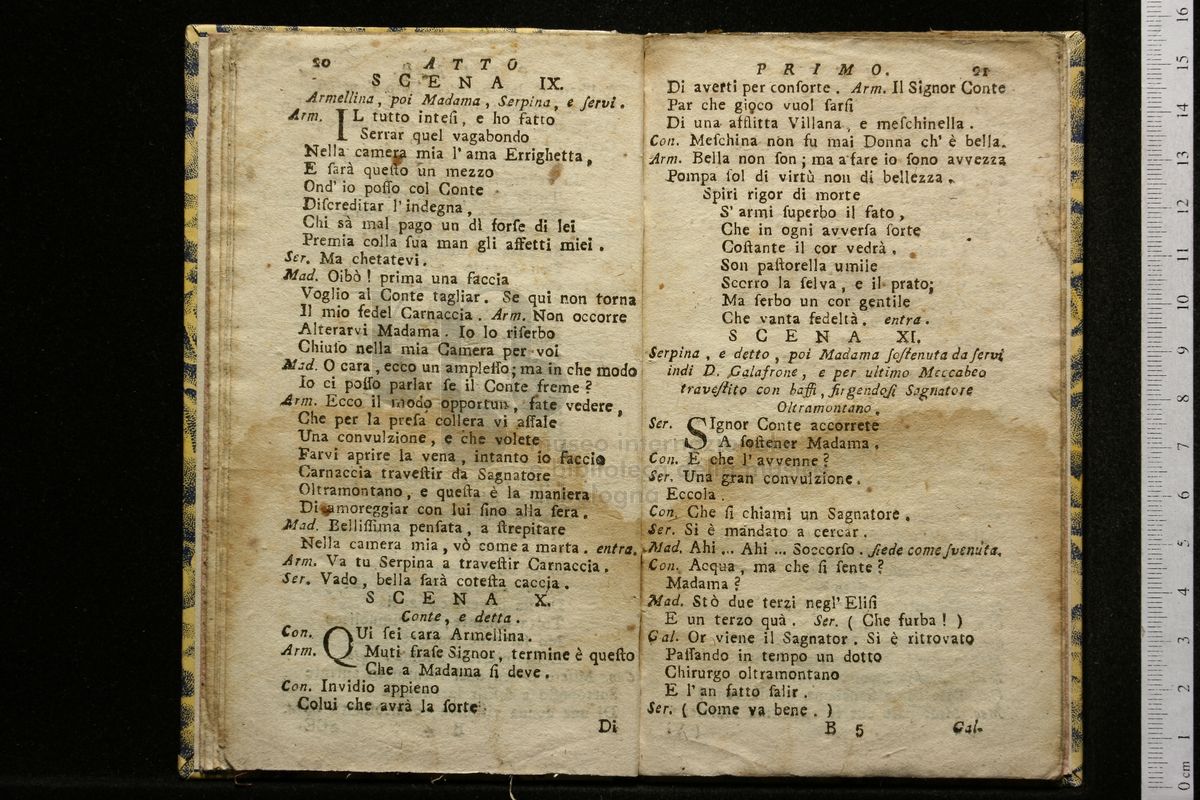 20 ATTO
SCENA IX.
Armellina, poi Madama, Serpina, e ſervi.
Arm. IL tutto inteſi, e ho fatto
Serrar quel vagabondo
Nella camera mia l'ama Errighetta,
E ſarà queſto un mezzo
Ond' io poſſo col Conte
Diſcreditar l'indegna,
Chi sà mal pago un dì forſe di lei
Premia colla ſua man gli affetti miei.
Ser. Ma chetatevi.
Mad. Oibò! prima una faccia
Voglio al Conte tagliar. Se qui non torna
Il mio fedel Carnaccia. Arm. Non occorre
Alterarvi Madama. Io lo riſerbo
Chiuſo nella mia Camera per voi
Mad. O cara, ecco un ampleſſo; ma in che modo
Io ci poſſo parlar ſe il Conte freme?
Arm. Ecco il modo opportun, fate vedere,
Che per la preſa collera vi aſſale
Una convulzione, e che volete
Farvi aprire la vena, intanto io faccio
Carnaccia traveſtir da Sagnatore
Oltramontano, e queſta è la maniera
Di amoreggiar con lui ſino alla ſera.
Mad. Belliſſima penſata, a ſtrepitare
Nella camera mia, vò come a marta. entra.
Arm. Va tu Serpina a traveſtir Carnaccia.
Ser. Vado, bella ſarà coteſta caccia.
SCENA X.
Conte, e detta.
Con. QUi ſei cara Armellina.
Arm. Muti fraſe Signor, termine è queſto
Che a Madama ſi deve.
Con. Invidio appieno
Colui che avrà la ſorte
Di
PRIMO. 21
Di averti per conſorte. Arm. Il Signor Conte
Par che gioco vuol farſi
Di una afflitta Villana, e meſchinella.
Con. Meſchina non fu mai Donna ch' è bella.
Arm. Bella non ſon; ma a fare io ſono avvezza
Pompa ſol di virtù non di bellezza.
Spiri rigor di morte
S' armi ſuperbo il fato,
Che in ogni avverſa ſorte
Coſtante il cor vedrà.
Son paſtorella umile
Scorro la ſelva, e il prato;
Ma ſerbo un cor gentile
Che vanta fedeltà. entra.
SCENA XI.
Serpina, e detto, poi Madama ſoſtenuta da ſervi
indi D. Galafrone, e per ultimo Meccabeo
traveſtito con baffi, fingendoſi Sagnatore
Oltramontano.
Ser. SIgnor Conte accorrete
A ſoſtener Madama.
Con. E che l'avvenne?
Ser. Una gran convulzione.
Eccola.
Con. Che ſi chiami un Sagnatore.
Ser. Si è mandato a cercar.
Mad. Ahi ... Ahi ... Soccorſo. ſiede come ſvenuta.
Con. Acqua, ma che ſi ſente?
Madama?
Mad. Stò due terzi negl' Eliſi
E un terzo quà. Ser. ( Che furba! )
Gal. Or viene il Sagnator. Si è ritrovato
Paſſando in tempo un dotto
Chirurgo oltramontano
E l'an fatto ſalir.
Ser. ( Come va bene. )
B 5 Gal.